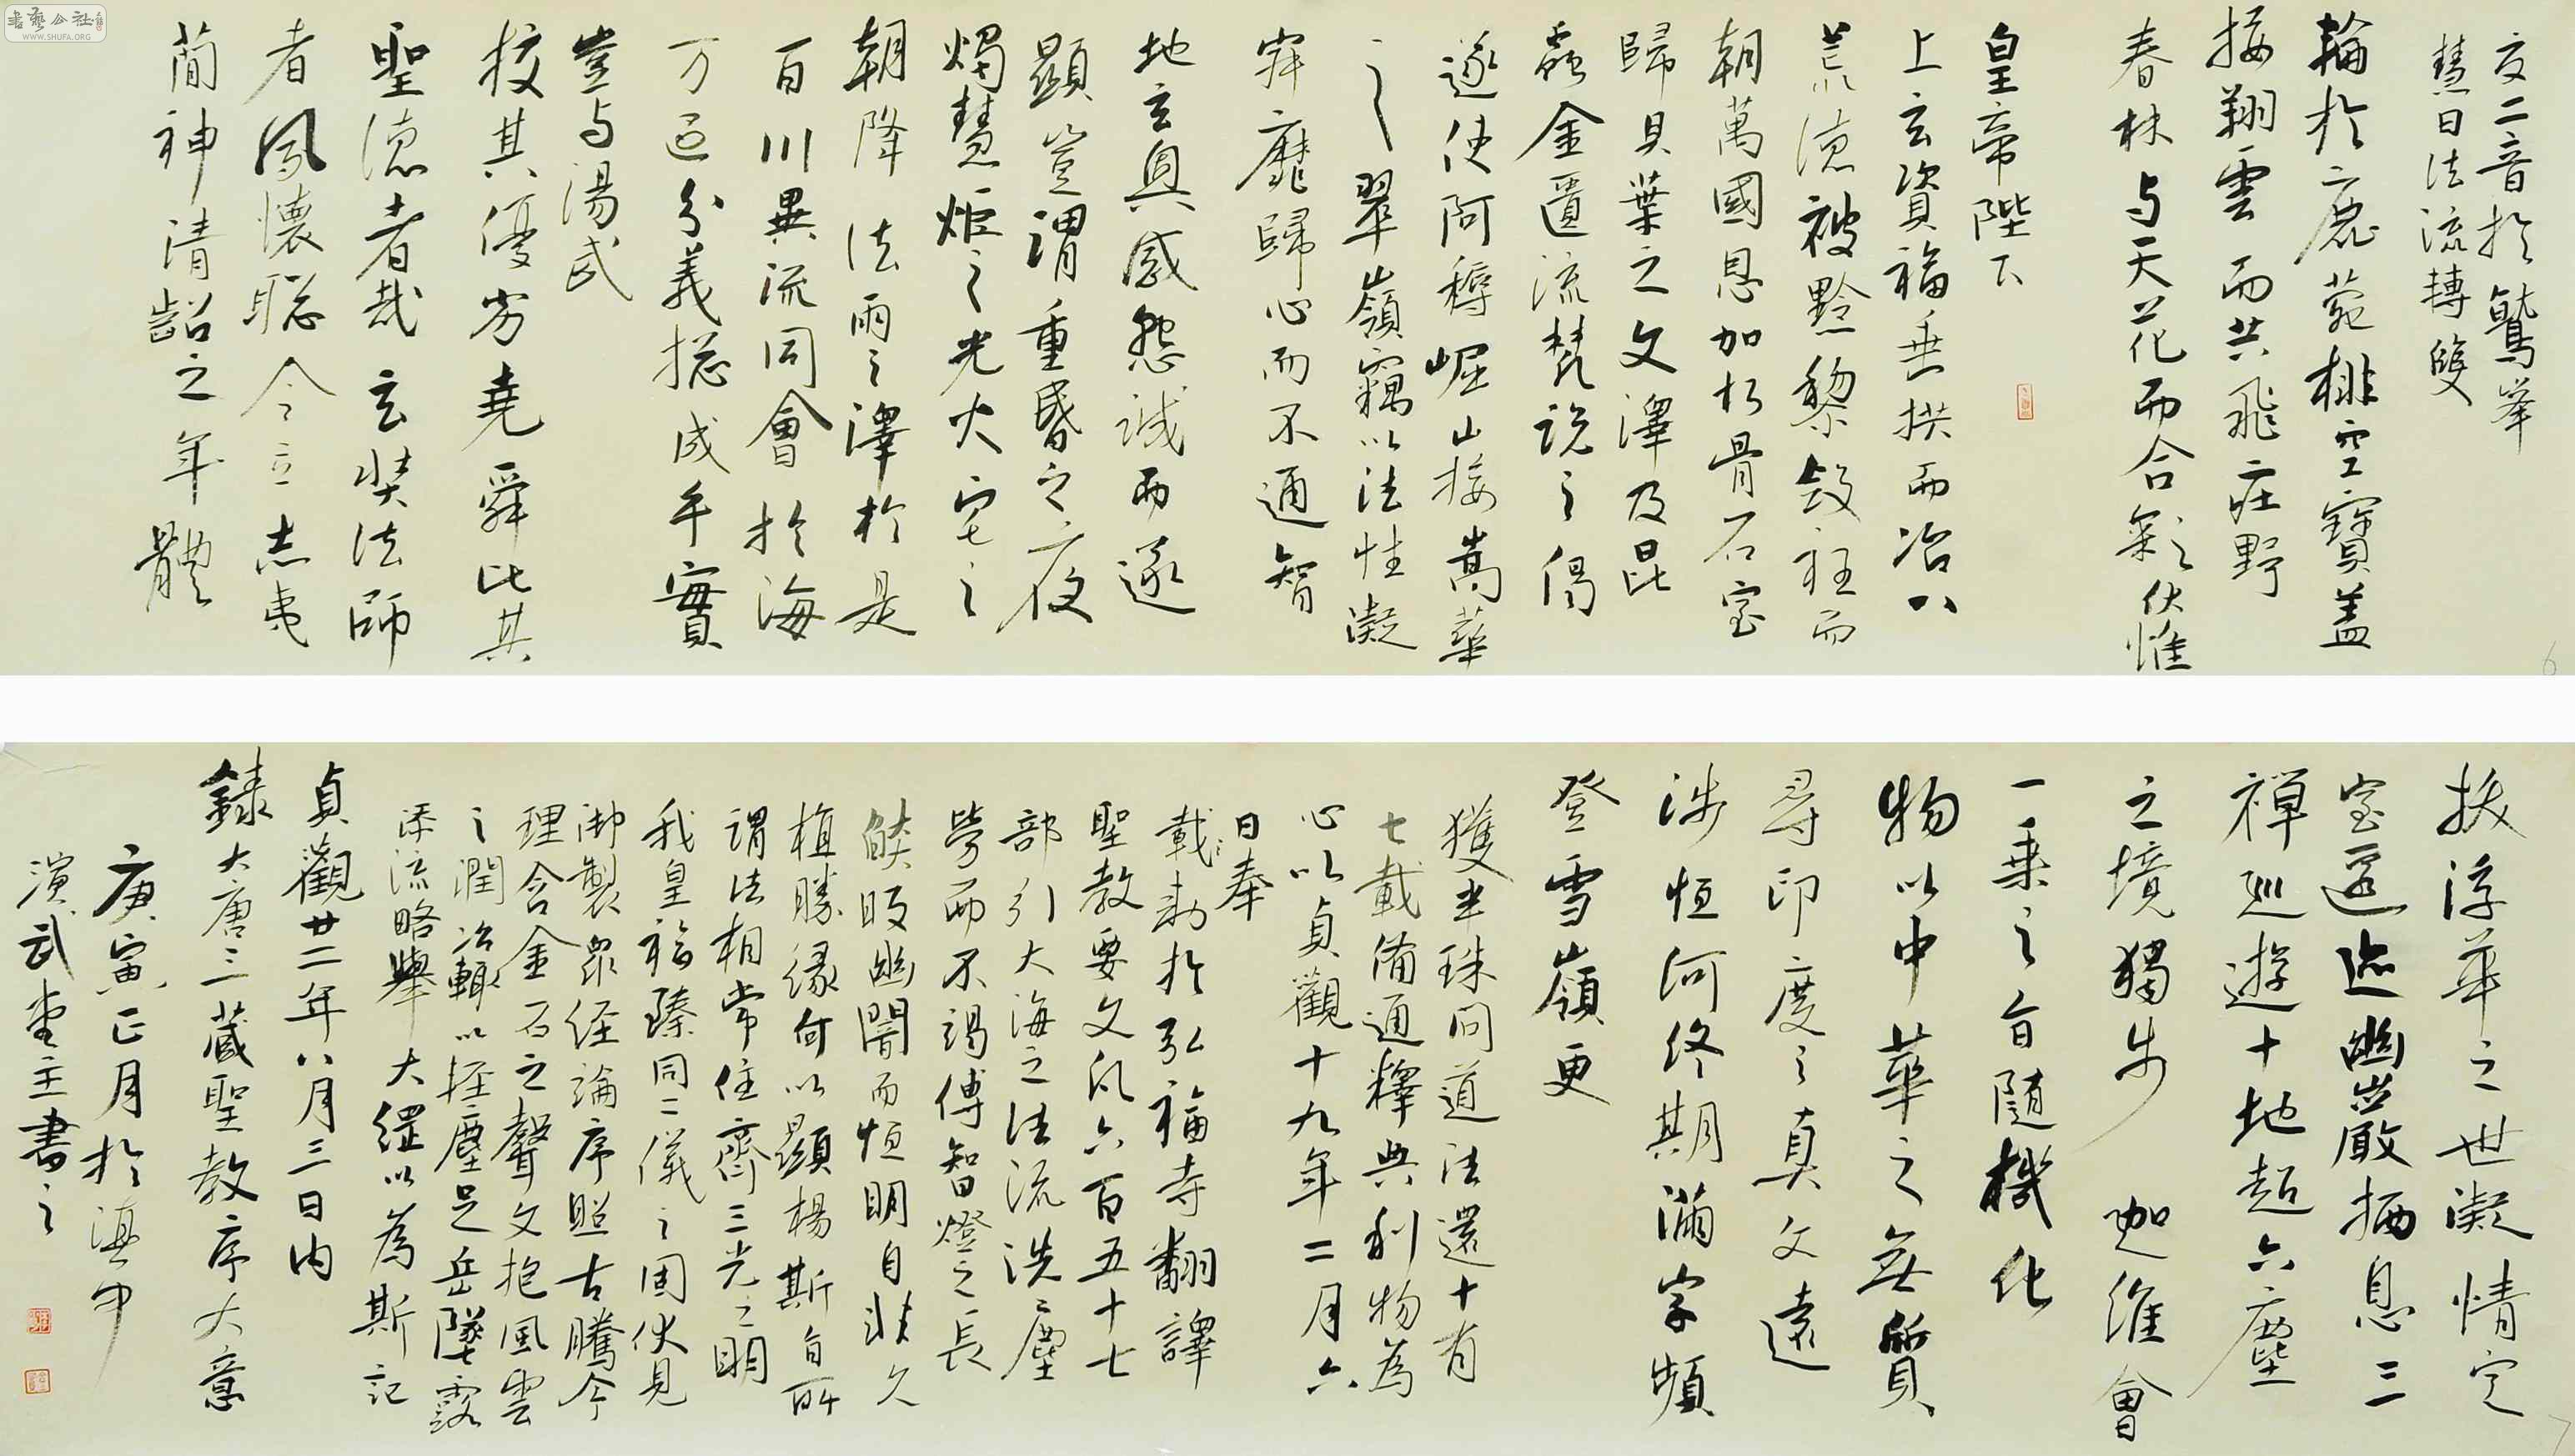 書藝公社
WWW.SHUFA.ORG
文二音於鷲峯
慧日法流轉雙
輪於鹿菀排空寶盖
接翔雲而共飛莊野
春林与天花而合彩伏惟
皇帝陛下
上玄資福垂拱而治八
荒德被黔黎斂衽而
朝萬國恩加朽骨石室
歸貝葉之文澤及昆
蟲金匱流梵說之偈
遂使阿耨
崛山接嵩華
之翠嶺竊以法性凝
寂靡歸心而不通智
地玄奧感懇誠而遂
顯豈謂重昏之夜
燭慧炬之光火宅之
朝降法雨之澤於是
百川異流同會於海
万區分義揔成乎實
豈与湯武
挍其優劣堯舜比其
聖德者哉玄奘法師
者夙懷聡令立志夷
蕳神清齠之年體
拔浮華之世凝情定
室匿迹幽巖栖息三
禪巡遊十地超六塵
之境獨步 迦維會
一乗之旨隨機化
物以中華之無質
尋印度之真文遠
涉恒河終期滿字頻
登雪嶺更
獲半珠問道法還十有
七載備通釋典利物為
心以貞觀十九年二月六
日奉
載勅於弘福寺翻譯
聖教要文凡六百五十七
部引大海之法流洗塵
勞而不竭傳智燈之長
燄晈幽闇而恒明自非久
植勝緣何以顯楊斯旨所
謂法相常住齊三光之明
我皇福臻同二儀之固伏見
御製衆経論序照古騰今
理含金石之聲文抱風雲
之潤治輙以軽塵足岳墜露
添流略舉大綱以為斯記
貞觀廿二年八月三日內
錄大唐三藏聖教序大意
庚寅正月於海
演武堂主書之